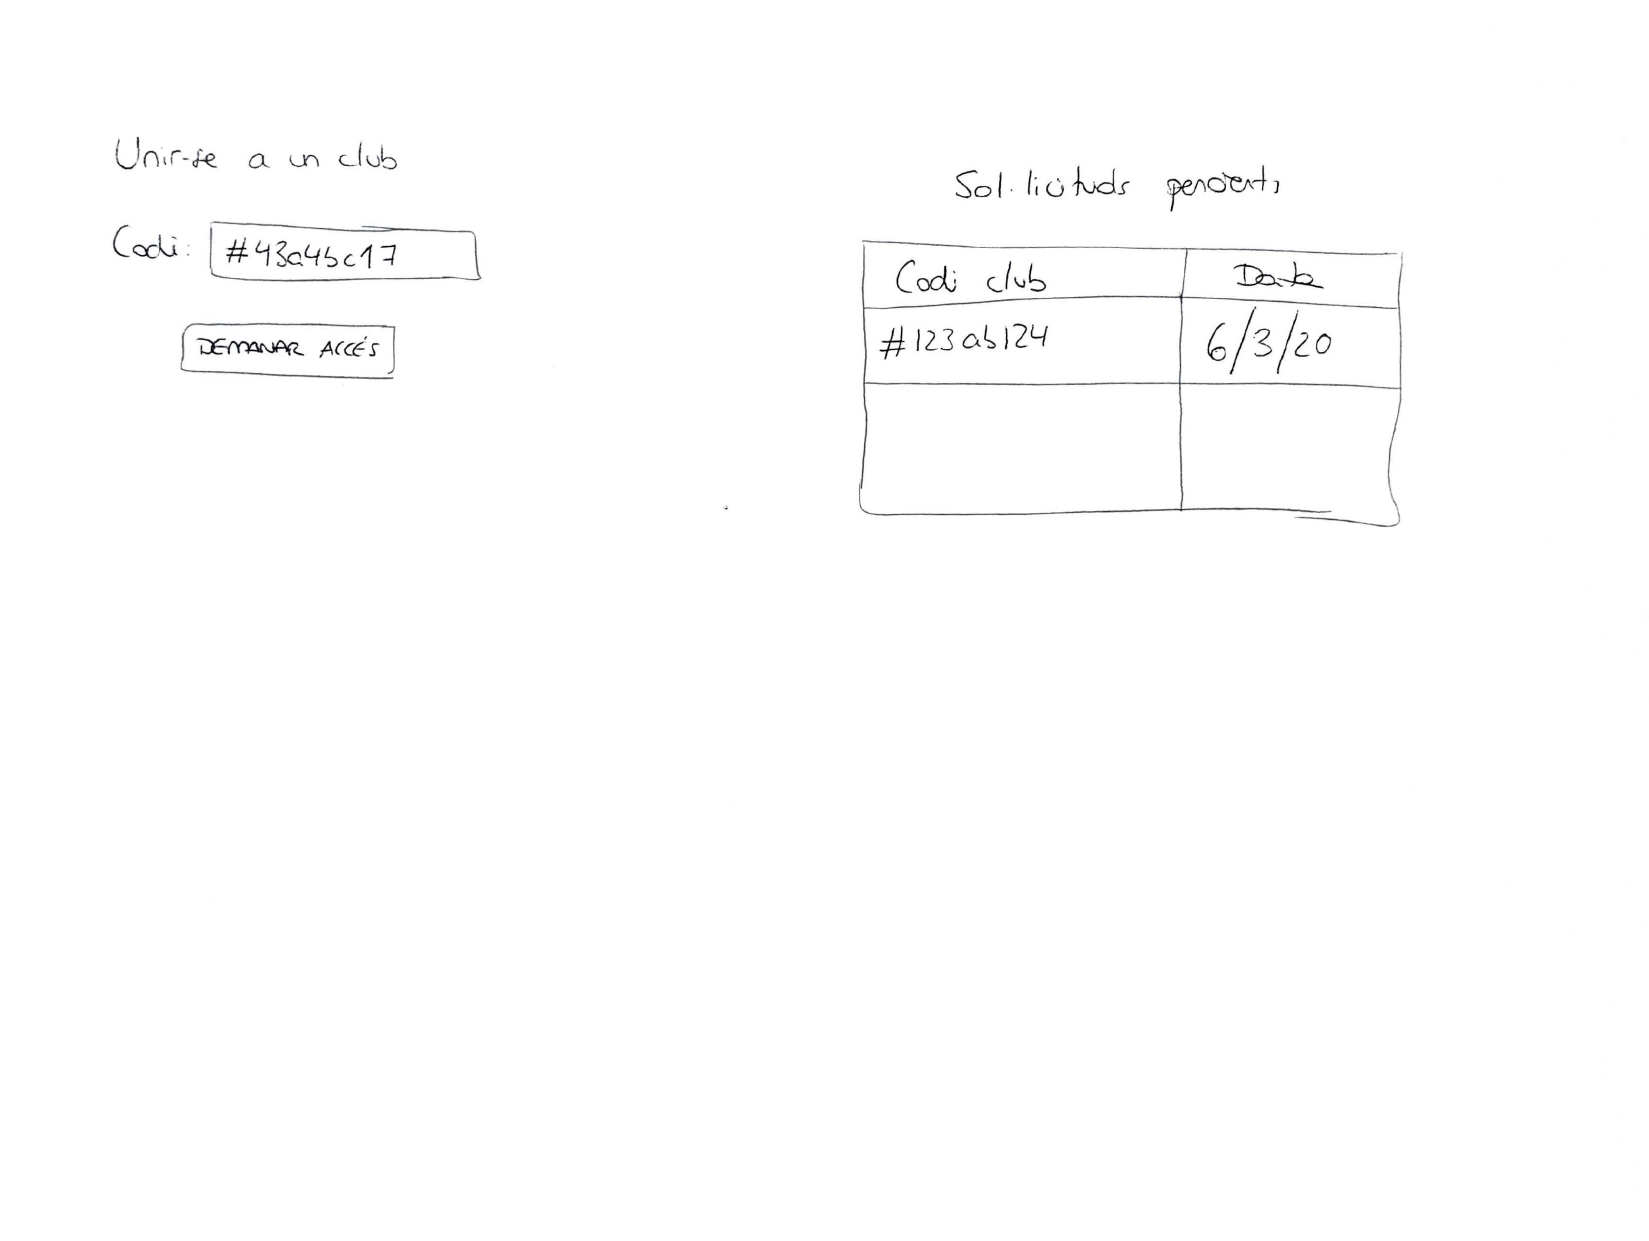 Unir-se a un club
Codi: #43a4bc17
DEMANAR ACCÉS
Sol·licituds pendents
Codi club Data
#123ab124 6/3/20